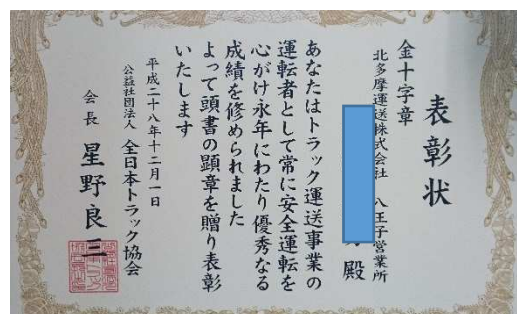 表彰状
金十字章
北多摩運送株式会社 八王子営業所
殿
あなたはトラック運送事業の
運転者として常に安全運転を
心がけ永年にわたり優秀なる
成績を修められました
よって頭書の顕章を贈り表彰
いたします
平成二十八年十二月一日
公益社団法人 全日本トラック協会
会長 星野良三